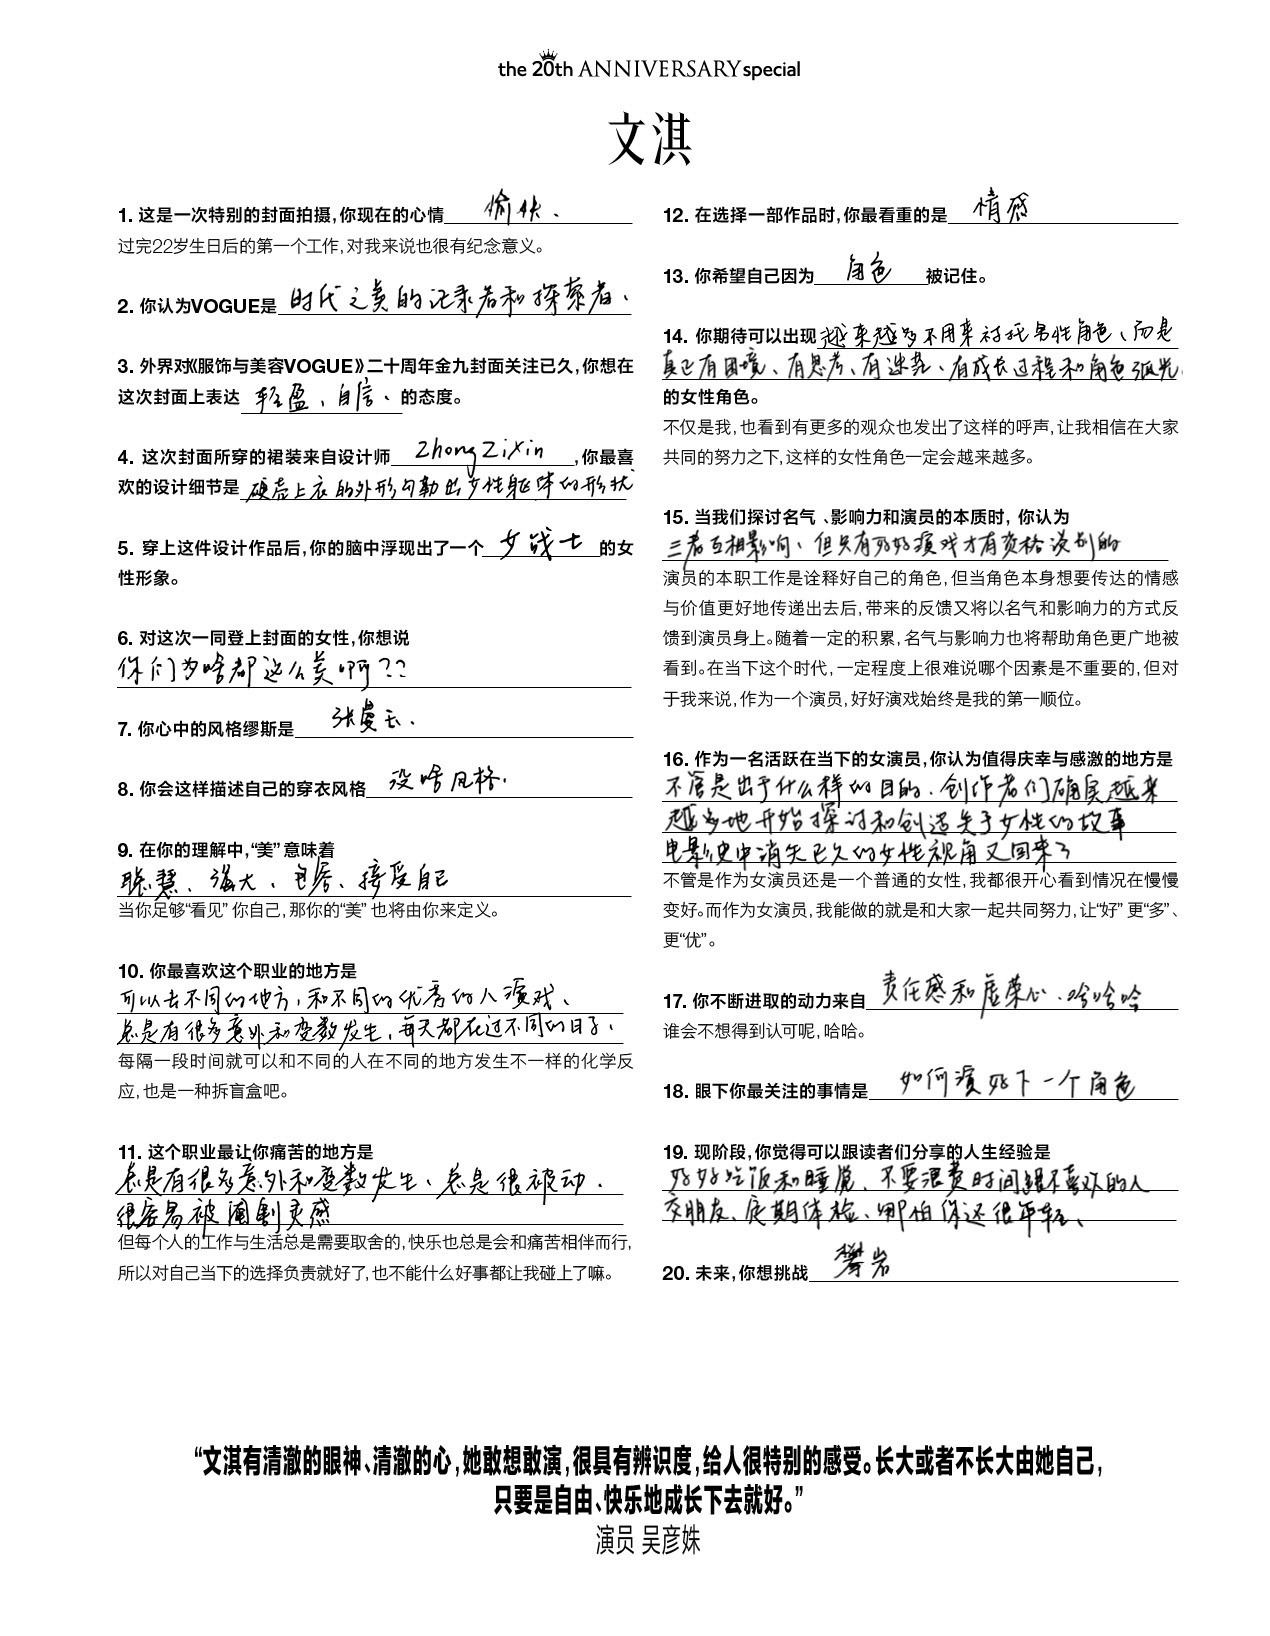 the 20th ANNIVERSARY special
文淇
1. 这是一次特别的封面拍摄,你现在的心情 愉快、
过完22岁生日后的第一个工作,对我来说也很有纪念意义。
2. 你认为VOGUE是 时代之美的记录者和探索者、
3. 外界对《服饰与美容VOGUE》二十周年金九封面关注已久,你想在
这次封面上表达 轻盈、自信、 的态度。
4. 这次封面所穿的裙装来自设计师 Zhong Zixin ,你最喜
欢的设计细节是 硬壳上衣的外形勾勒出女性躯体的形状
5. 穿上这件设计作品后,你的脑中浮现出了一个 女战士 的女
性形象。
6. 对这次一同登上封面的女性,你想说
你们为啥都这么美啊??
7. 你心中的风格缪斯是 张曼玉、
8. 你会这样描述自己的穿衣风格 没啥风格、
9. 在你的理解中,“美”意味着
聪慧、强大、包容、接受自己
当你足够“看见”你自己,那你的“美”也将由你来定义。
10. 你最喜欢这个职业的地方是
可以去不同的地方,和不同的优秀的人演戏、
总是有很多意外和变数发生,每天都在过不同的日子、
每隔一段时间就可以和不同的人在不同的地方发生不一样的化学反
应,也是一种拆盲盒吧。
11. 这个职业最让你痛苦的地方是
总是有很多意外和变数发生、总是很被动、
很容易被阉割灵感
但每个人的工作与生活总是需要取舍的,快乐也总是会和痛苦相伴而行,
所以对自己当下的选择负责就好了,也不能什么好事都让我碰上了嘛。
12. 在选择一部作品时,你最看重的是 情感
13. 你希望自己因为 角色 被记住。
14. 你期待可以出现 越来越多不用来衬托男性角色、而是
真正有困境、有思考、有迷茫、有成长过程和角色弧光
的女性角色。
不仅是我,也看到有更多的观众也发出了这样的呼声,让我相信在大家
共同的努力之下,这样的女性角色一定会越来越多。
15. 当我们探讨名气、影响力和演员的本质时, 你认为
三者互相影响、但只有好好演戏才有资格谈别的
演员的本职工作是诠释好自己的角色,但当角色本身想要传达的情感
与价值更好地传递出去后,带来的反馈又将以名气和影响力的方式反
馈到演员身上。随着一定的积累,名气与影响力也将帮助角色更广地被
看到。在当下这个时代,一定程度上很难说哪个因素是不重要的,但对
于我来说,作为一个演员,好好演戏始终是我的第一顺位。
16. 作为一名活跃在当下的女演员,你认为值得庆幸与感激的地方是
不管是出于什么样的目的、创作者们确实越来
越多地开始探讨和创造关于女性的故事
电影史中消失已久的女性视角又回来了
不管是作为女演员还是一个普通的女性,我都很开心看到情况在慢慢
变好。而作为女演员,我能做的就是和大家一起共同努力,让“好”更“多”、
更“优”。
17. 你不断进取的动力来自 责任感和虚荣心、哈哈哈
谁会不想得到认可呢,哈哈。
18. 眼下你最关注的事情是 如何演好下一个角色
19. 现阶段,你觉得可以跟读者们分享的人生经验是
好好吃饭和睡觉、不要浪费时间跟不喜欢的人
交朋友、定期体检、哪怕你还很年轻、
20. 未来,你想挑战 攀岩
“文淇有清澈的眼神、清澈的心,她敢想敢演,很具有辨识度,给人很特别的感受。长大或者不长大由她自己,
只要是自由、快乐地成长下去就好。”
演员 吴彦姝